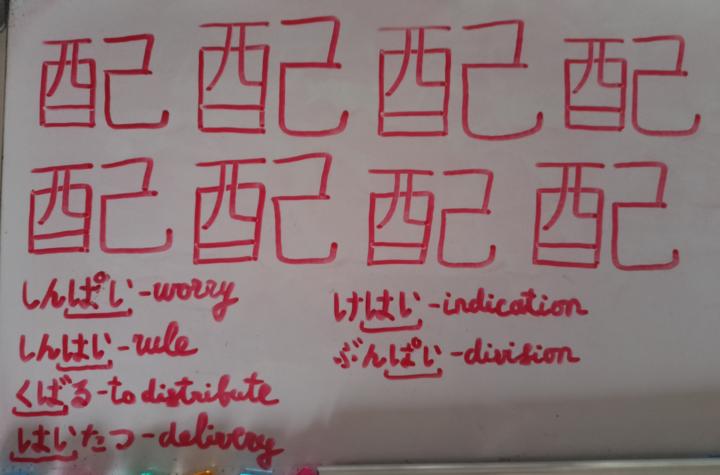 配配配配
配配配配
しんぱい-worry
しんはい-rule
くばる-to distribute
はいたつ-delivery
けはい-indication
ぶんぱい-division